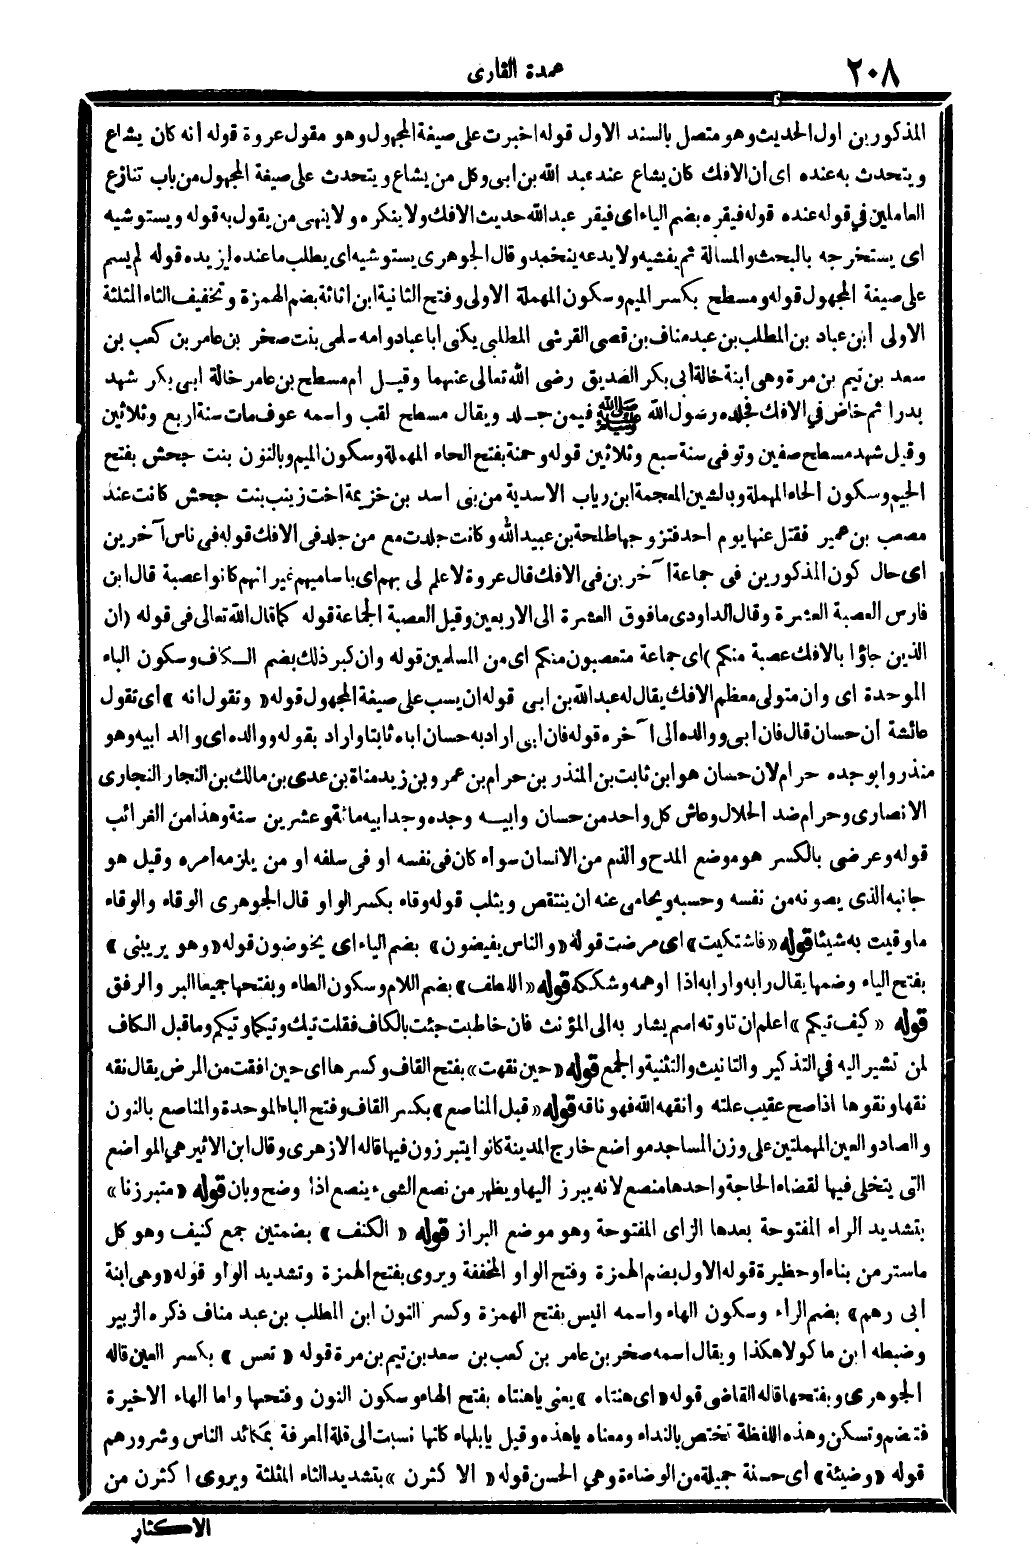 ٢٠٨
عمدة القارى
المذكورين اول الحديث وهو متصل بالسند الاول قوله اخبرت على صيغة المجهول وهو مقول عروة قوله انه كان يشاع
ويتحدث به عنده اى أن الافك كان يشاع عند عبد الله بن أبى وكل من يشاع ويتحدث على صيغة المجهول من باب تنازع
العاملين في قوله عنده قوله فيقره بضم الياء اى فيقر عبد الله حديث الافك ولا ينكره ولا ينهى من يقول به قوله ويستوشيه
اى يستخرجه بالبحث والمسالة ثم يفشيه ولا يدعه ينخمد وقال الجوهرى يستوشيه اى يطلب ما عنده ليزيده قوله لم يسم
على صيغة المجهول قوله ومسطح بكسر الميم وسكون المهملة الاولى وفتح الثانية ابن اثاثة بضم الهمزة وتخفيف الثاء المثلثة
الاولى ابن عباد بن المطلب بن عبد مناف بن قصى القرشى المطلبى يكنى ابا عباد وامه سلمى بنت صخر بن عامر بن كعب بن
سعد بن تيم بن مرة وهى ابنة خالة أبى بكر الصديق رضى الله تعالى عنهما وقيل ام مسطح بن عامر خالة ابى بكر شهد
بدرا ثم خاض في الافك فجلده رسول الله ﷺ فيمن جلد ويقال مسطح لقب واسمه عوف مات سنة اربع وثلاثين
وقيل شهد مسطح صفين وتوفى سنة سبع وثلاثين قوله وحمنة بفتح الحاء المهملة وسكون الميم وبالنون بنت جحش بفتح
الجيم وسكون الحاء المهملة وبالشين المعجمة ابن رياب الاسدية من بنى اسد بن خزيمة اخت زينب بنت جحش كانت عند
مصعب بن عمير فقتل عنها يوم احد فتزوجها طلحة بن عبيد الله وكانت جلدت مع من جلد فى الافك قوله فى ناس آخرين
اى حال كون المذكورين فى جماعة آخرين فى الافك قال عروة لا علم لى بهم اى باساميهم غير انهم كانوا عصبة قال ابن
فارس العصبة العشرة وقال الداودى ما فوق العشرة الى الاربعين وقيل العصبة الجماعة قوله كما قال الله تعالى فى قوله (ان
الذين جاؤا بالافك عصبة منكم) اى جماعة متعصبون منكم اى من المسلمين قوله وان كبر ذلك بضم الكاف وسكون الباء
الموحدة اى وان متولى معظم الافك يقال له عبد الله بن ابى قوله ان يسب على صيغة المجهول قوله «وتقول انه» اى تقول
عائشة أن حسان قال فان أبى ووالده الى آخره قوله فان ابى اراد به حسان اباه ثابتا واراد بقوله ووالده اى والد ابيه وهو
منذر وابو جده حرام لان حسان هو ابن ثابت بن المنذر بن حرام بن عمرو بن زيد مناة بن عدى بن مالك بن النجار النجارى
الانصارى وحرام ضد الحلال وعاش كل واحد من حسان وابيه وجده وجد ابيه مائة وعشرين سنة وهذا من الغرائب
قوله وعرضى بالكسر هو موضع المدح والذم من الانسان سواء كان فى نفسه او فى سلفه او من يلزمه امره وقيل هو
جانبه الذى يصونه من نفسه وحسبه ويحامى عنه ان ينتقص ويثلب قوله وقاء بكسر الواو قال الجوهرى الوقاء والوقاء
ما وقيت به شيئا قوله «فاشتكيت» اى مرضت قوله «والناس يفيضون» بضم الياء اى يخوضون قوله «وهو يريبنى»
بفتح الياء وضمها يقال رابه وارابه اذا اوهمه وشككه قوله «اللطف» بضم اللام وسكون الطاء وبفتحها جميعا البر والرفق
قوله «كيف تيكم» اعلم ان تا وته اسم يشار به الى المؤنث فان خاطبت جئت بالكاف فقلت تيك وتيكما وتيكم وما قبل الكاف
لمن تشير اليه في التذكير والتانيث والتثنية والجمع قوله «حين نقهت» بفتح القاف وكسرها اى حين افقت من المرض يقال نقه
نقها ونقوها اذا صح عقيب علته وانقهه الله فهو ناقه قوله «قبل المناصع» بكسر القاف وفتح الباء الموحدة والمناصع بالنون
والصاد والعين المهملتين على وزن المساجد مواضع خارج المدينة كانوا يتبرزون فيها قاله الازهرى وقال ابن الاثير هي المواضع
التى يتخلى فيها لقضاء الحاجة واحدها منصع لانه يبرز اليها ويظهر من نصع الشىء ينصع اذا وضح وبان قوله «متبرزنا»
بتشديد الراء المفتوحة بعدها الزاى المفتوحة وهو موضع البراز قوله «الكنف» بضمتين جمع كنيف وهو كل
ما ستر من بناء او حظيرة قوله الاول بضم الهمزة وفتح الواو المخففة ويروى بفتح الهمزة وتشديد الواو قوله «وهى ابنة
أبى رهم» بضم الراء وسكون الهاء واسمه انيس بفتح الهمزة وكسر النون ابن المطلب بن عبد مناف ذكره الزبير
وضبطه ابن ماكولا هكذا ويقال اسمه صخر بن عامر بن كعب بن سعد بن تيم بن مرة قوله «تعس» بكسر العين قاله
الجوهرى وبفتحها قاله القاضى قوله «اى هنتاه» يعنى يا هنتاه بفتح الهاء وسكون النون وفتحها واما الهاء الاخيرة
فتضم وتسكن وهذه اللفظة تختص بالنداء ومعناه يا هذه وقيل يا بلهاء كانها نسبت الى قلة المعرفة بمكائد الناس وشرورهم
قوله «وضيئة» أى حسنة جميلة من الوضاءة وهي الحسن قوله «الا كثرن» بتشديد الثاء المثلثة ويروى اكثرن من
الاكثار